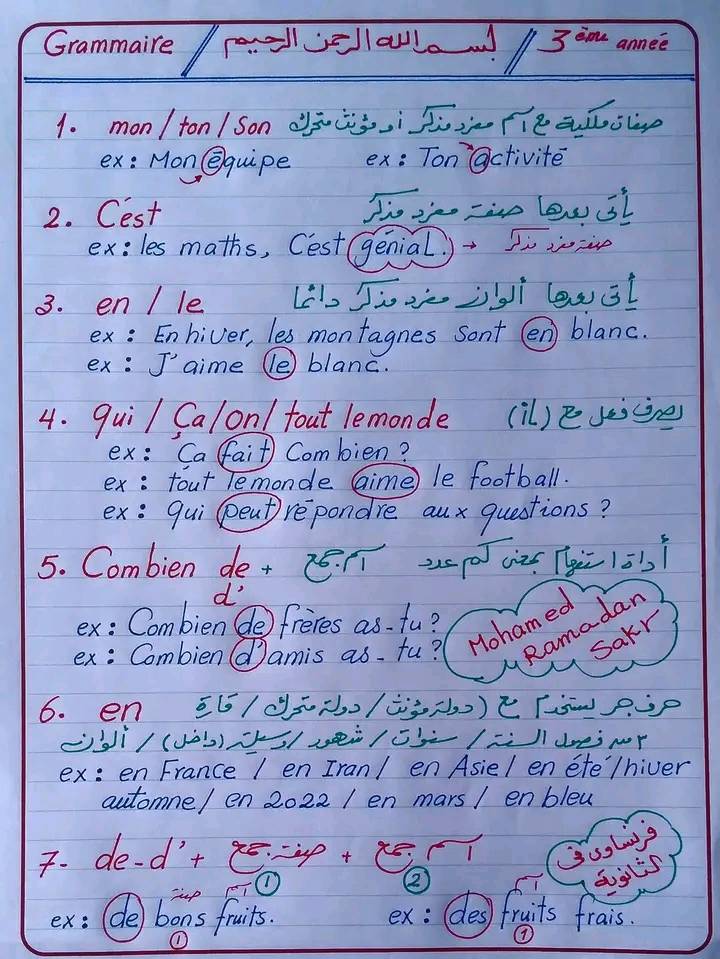 Grammaire / بسم الله الرحمن الرحيم // 3 ème année
1. mon / ton / Son صفات ملكية مع اسم مفرد مذكر أو مؤنث متحرك
ex : Mon équipe ex : Ton activité
2. C'est يأتى بعدها صفة مفرد مذكر
ex : les maths, C'est génial. → صفة مفرد مذكر
3. en / le يأتى بعدها ألوان مفرد مذكر دائما
ex : En hiver, les montagnes sont en blanc.
ex : J'aime le blanc.
4. qui / Ça / on / tout le monde يصرف فعل مع (iL)
ex : Ça fait Combien ?
ex : tout le monde aime le football.
ex : qui peut répondre aux questions ?
5. Combien de + اسم جمع أداة استفهام بمعنى كم عدد
d'
ex : Combien de frères as-tu ?
ex : Combien d'amis as-tu ?
Mohamed
Ramadan
Sakr
6. en حرف جر يستخدم مع (دولة مؤنث / دولة متحرك / قارة
٣ من فصول السنة / سنوات / شهور / وسيلة (داخل) / ألوان
ex : en France / en Iran / en Asie / en été / hiver
automne / en 2022 / en mars / en bleu
7- de-d' + صفة جمع + اسم جمع
1 2
فرنساوى فى
الثانوية
صفة اسم اسم
ex : de bons fruits. ex : des fruits frais.
1 1